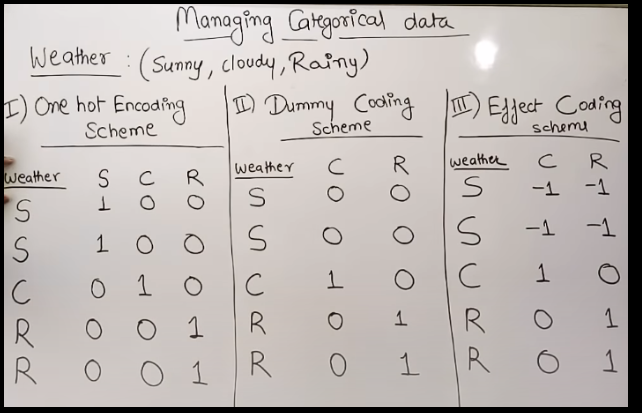 Managing Categorical data
Weather : (Sunny, cloudy, Rainy)
I) One hot Encoding
Scheme
weather S C R
S 1 0 0
S 1 0 0
C 0 1 0
R 0 0 1
R 0 0 1
II) Dummy Coding
Scheme
weather C R
S 0 0
S 0 0
C 1 0
R 0 1
R 0 1
III) Effect Coding
scheme
weather C R
S -1 -1
S -1 -1
C 1 0
R 0 1
R 0 1